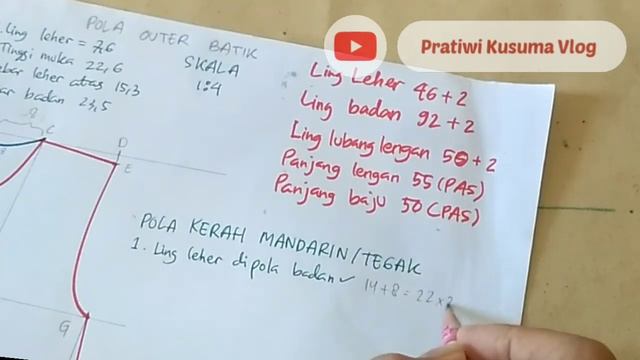 Pratiwi Kusuma Vlog
POLA OUTER BATIK
SKALA
1:4
Ling leher = 7,6
Tinggi muka 22,6
leher atas 15,3
badan 23,5
Ling Leher 46 + 2
Ling badan 92 + 2
Ling lubang lengan 50 + 2
Panjang lengan 55 (PAS)
Panjang baju 50 (PAS)
C
D
E
G
POLA KERAH MANDARIN/TEGAK
1. Ling leher di pola badan ✓ 14 + 8 = 22 x 2